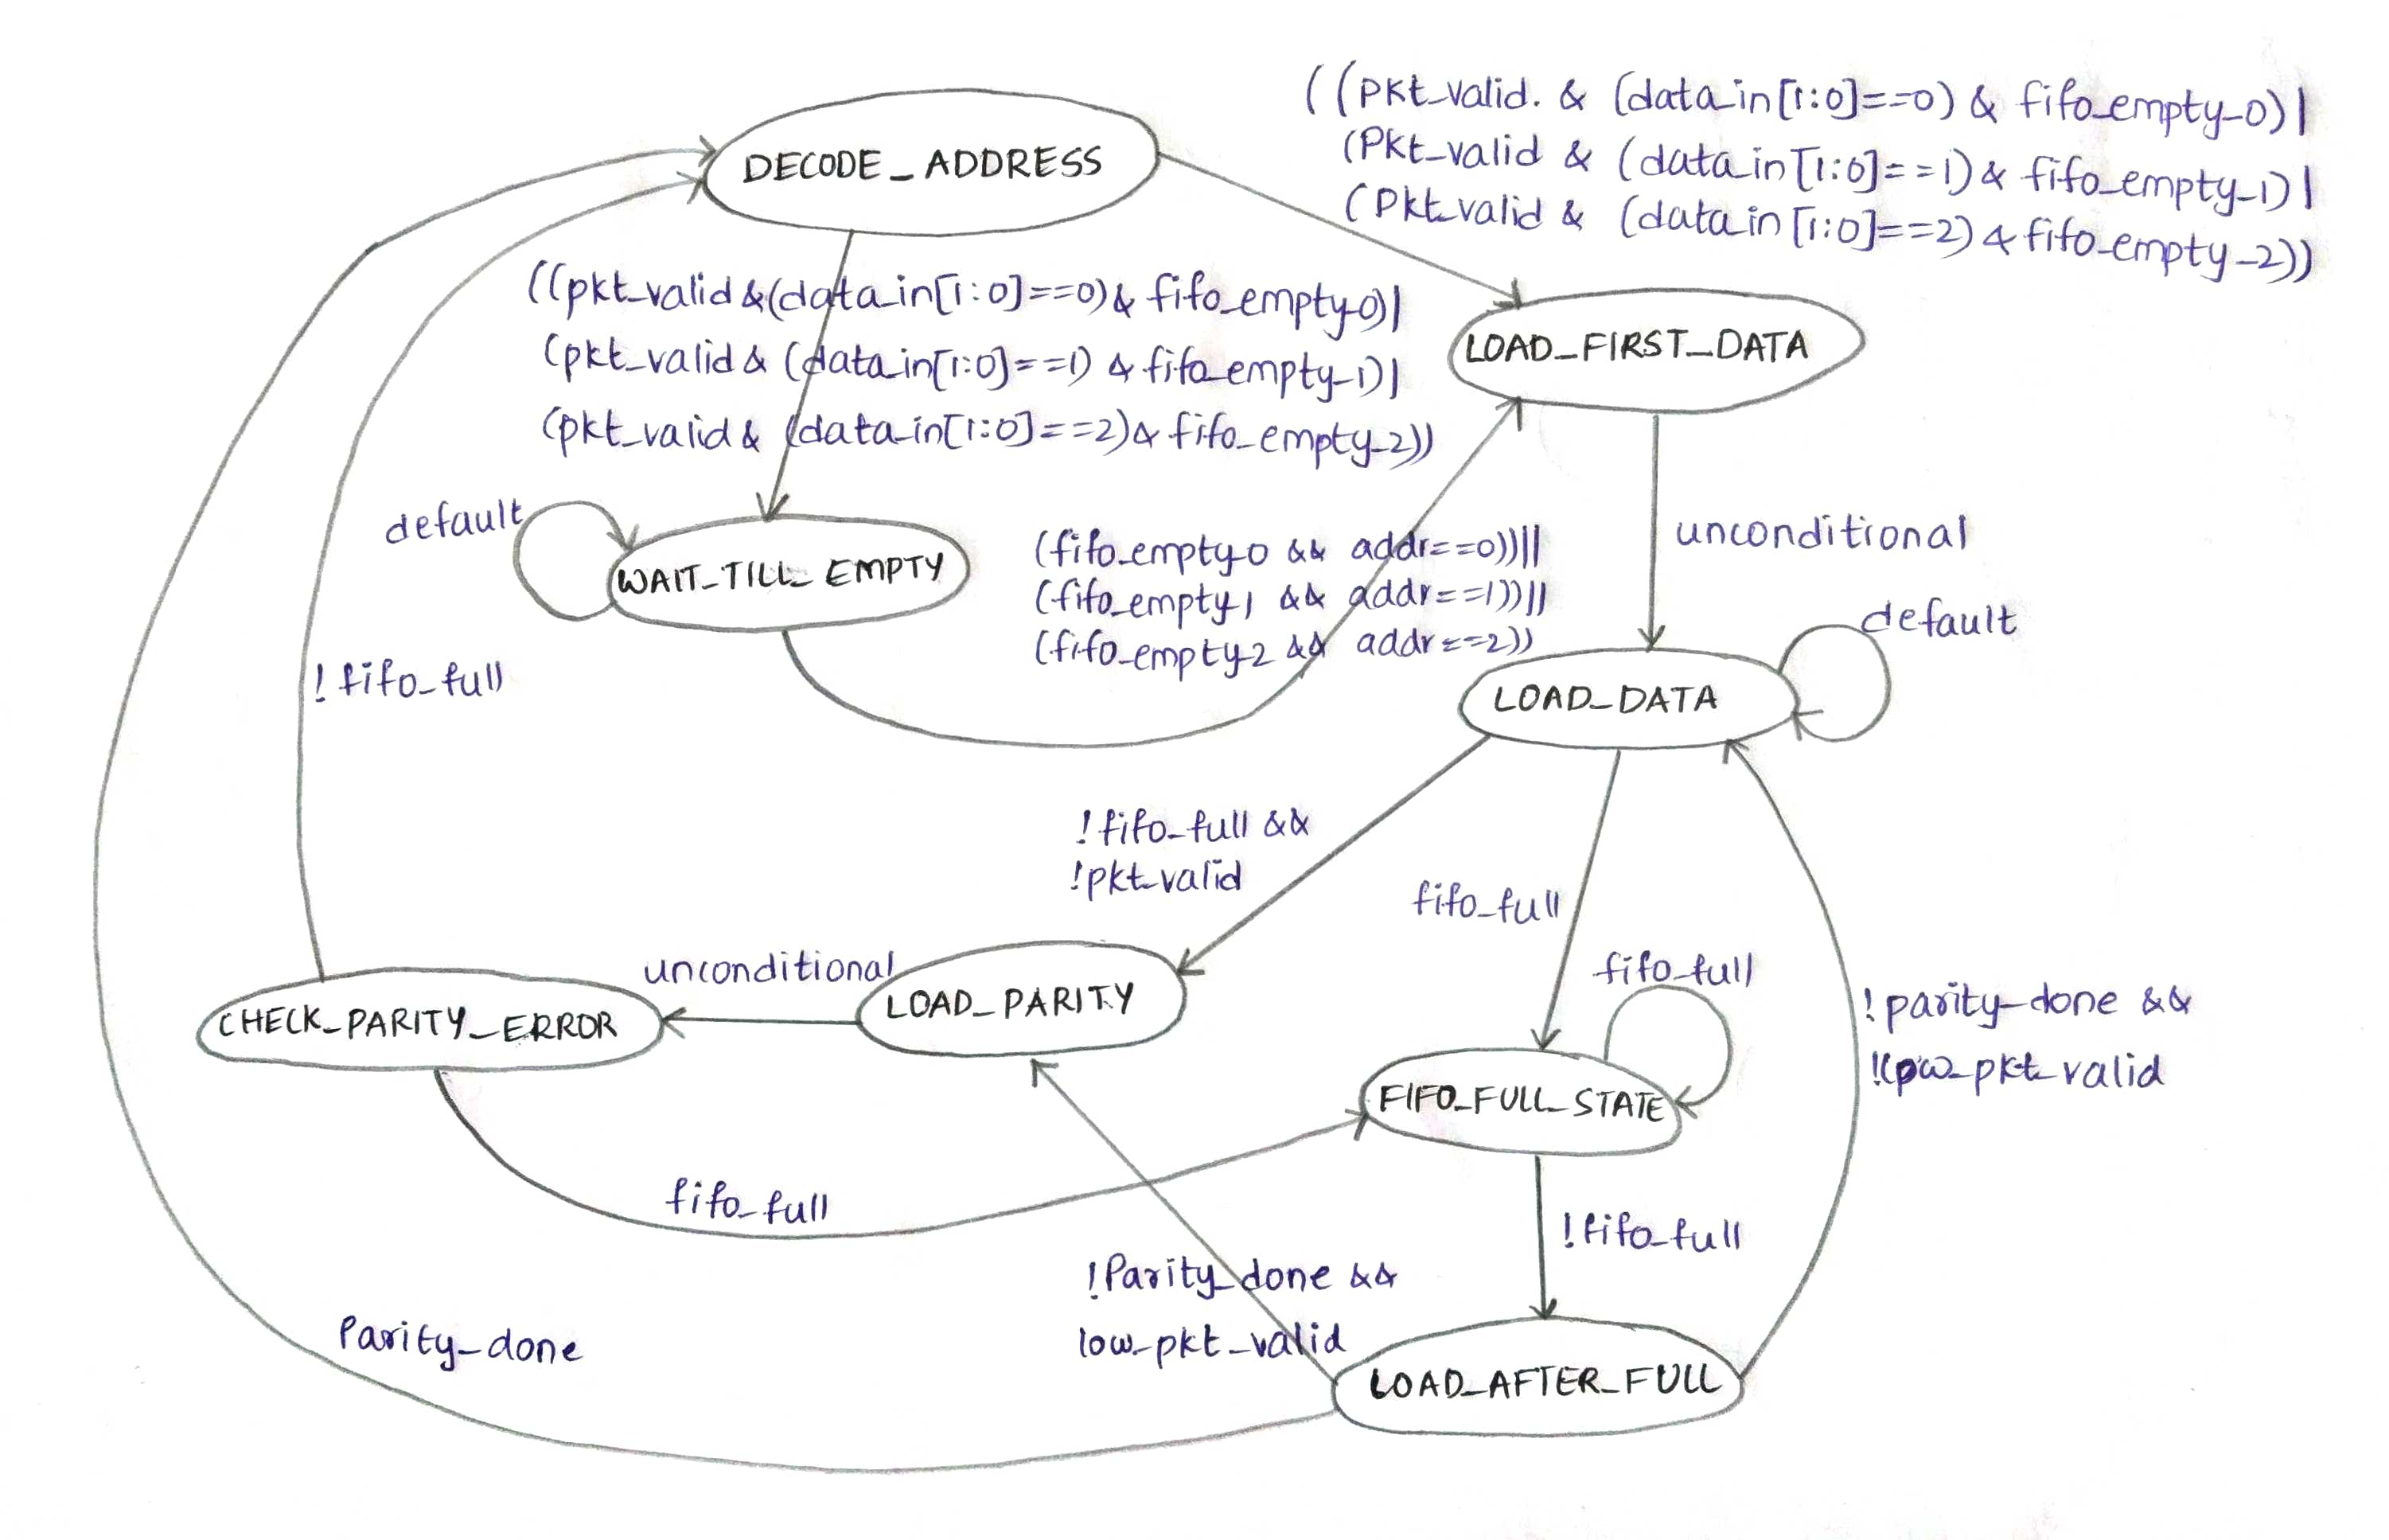 ((pkt_valid. & (data_in[1:0]==0) & fifo_empty_0)|
(Pkt_valid & (data_in[1:0]==1) & fifo_empty_1)|
(Pkt_valid & (data_in[1:0]==2) & fifo_empty_2))
DECODE_ADDRESS
((pkt_valid &(data_in[1:0]==0)& fifo_empty_0)|
(pkt_valid & (data_in[1:0]==1) & fifo_empty_1)|
(pkt_valid & (data_in[1:0]==2)& fifo_empty_2))
LOAD_FIRST_DATA
default
WAIT_TILL_EMPTY
(fifo_empty_0 && addr==0))||
(fifo_empty_1 && addr==1))||
(fifo_empty_2 && addr==2))
unconditional
default
!fifo_full
LOAD_DATA
!fifo_full &&
!pkt_valid
fifo_full
unconditional
fifo_full
LOAD_PARITY
CHECK_PARITY_ERROR
!parity_done &&
!low_pkt_valid
FIFO_FULL_STATE
fifo_full
!fifo_full
!Parity_done &&
low_pkt_valid
Parity_done
LOAD_AFTER_FULL